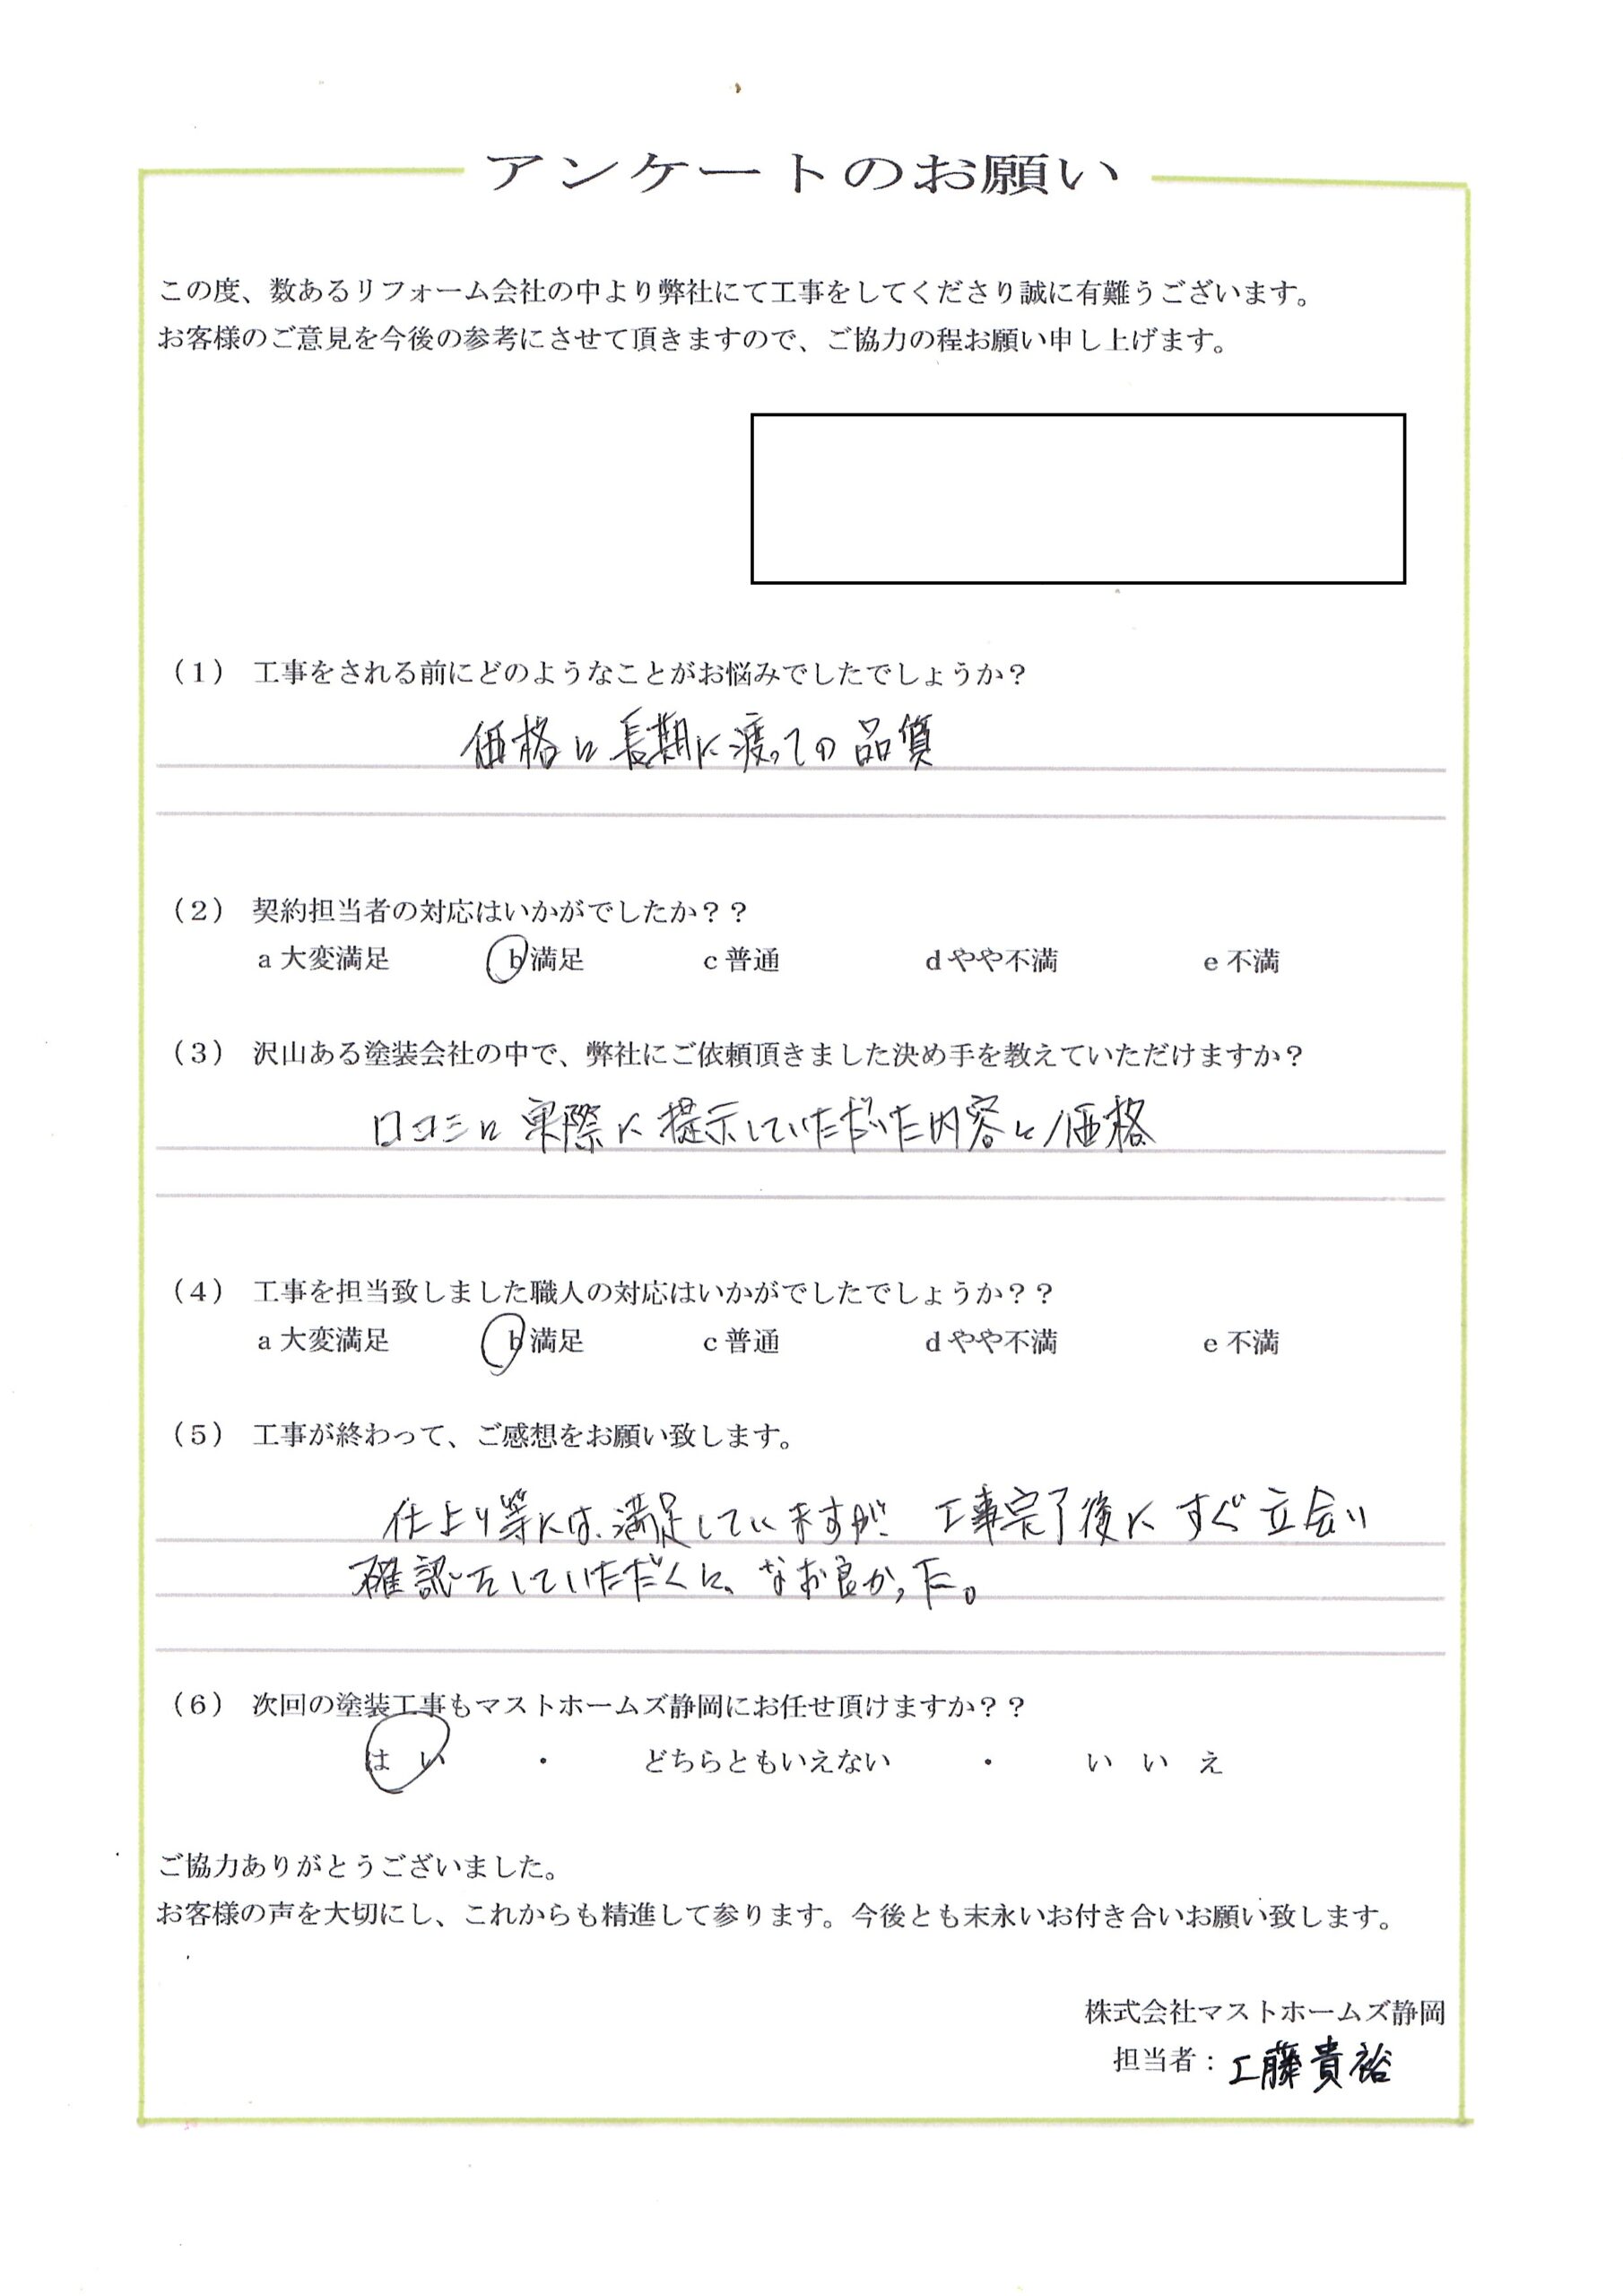 アンケートのお願い
この度、数あるリフォーム会社の中より弊社にて工事をしてくださり誠に有難うございます。
お客様のご意見を今後の参考にさせて頂きますので、ご協力の程お願い申し上げます。
（1） 工事をされる前にどのようなことがお悩みでしたでしょうか？
価格と長期に渡っての品質
（2） 契約担当者の対応はいかがでしたか？？
a 大変満足 b 満足 c 普通 d やや不満 e 不満
（3） 沢山ある塗装会社の中で、弊社にご依頼頂きました決め手を教えていただけますか？
口コミと実際に提示していただいた内容と価格
（4） 工事を担当致しました職人の対応はいかがでしたでしょうか？？
a 大変満足 b 満足 c 普通 d やや不満 e 不満
（5） 工事が終わって、ご感想をお願い致します。
仕上り等には、満足していますが、工事完了後にすぐ立会い
確認をしていただくと、なお良かった。
（6） 次回の塗装工事もマストホームズ静岡にお任せ頂けますか？？
は い ・ どちらともいえない ・ い い え
ご協力ありがとうございました。
お客様の声を大切にし、これからも精進して参ります。今後とも末永いお付き合いお願い致します。
株式会社マストホームズ静岡
担当者：工藤貴裕